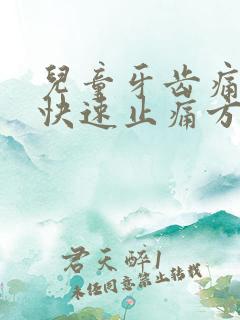 兒童牙齿痛
快速止痛方
君天醉1
未经同意禁止转载